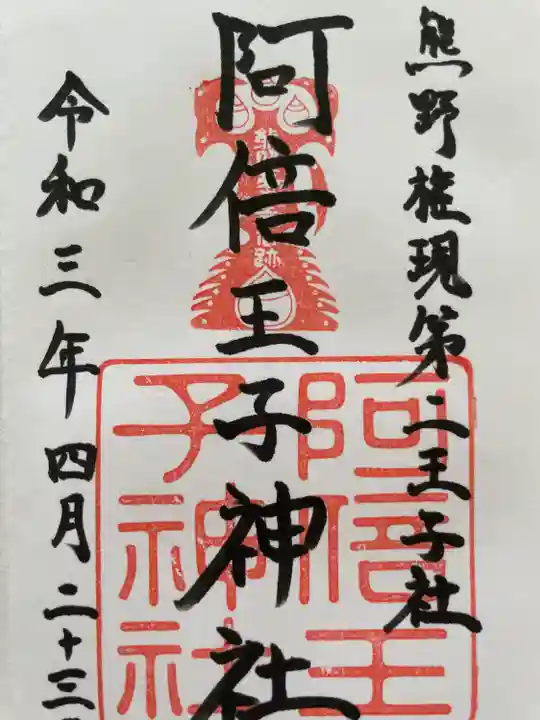 熊野権現第二王子社
阿倍王子神社
令和三年四月二十三
阿倍王
子神社